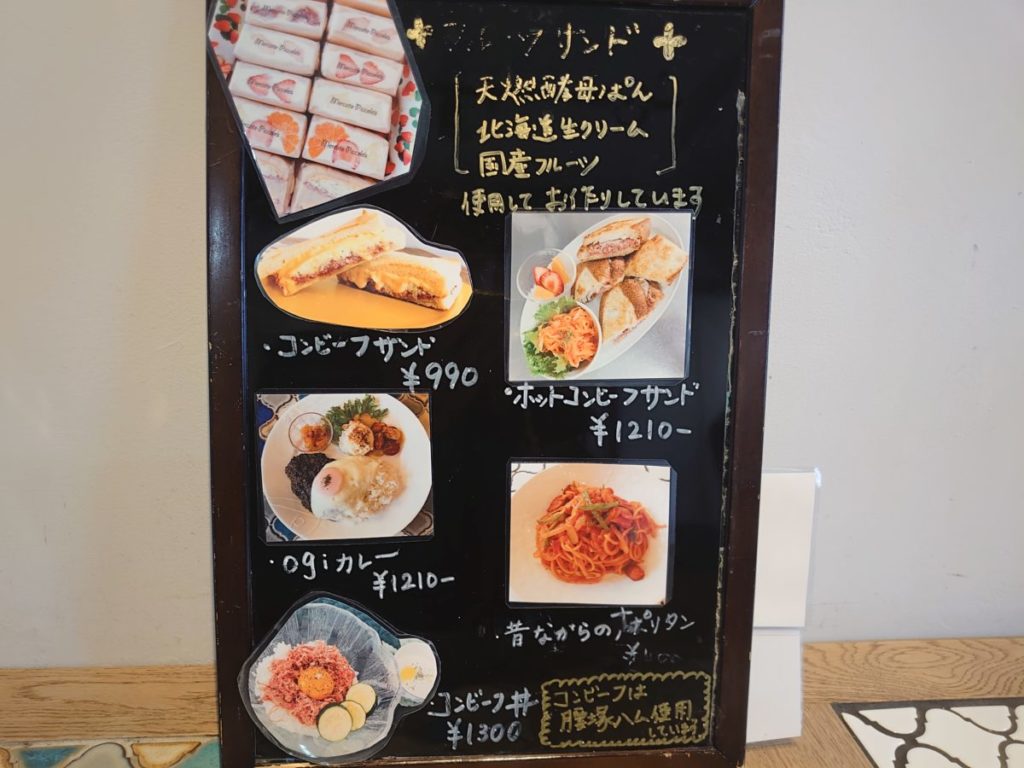 フルーツサンド
天然酵母ぱん
北海道生クリーム
国産フルーツ
使用して お作りしています
・コンビーフサンド
¥990
・ホットコンビーフサンド
¥1210-
・ogiカレー
¥1210-
・昔ながらのナポリタン
・コンビーフ丼
¥1300
コンビーフは
腰塚ハム使用
しています